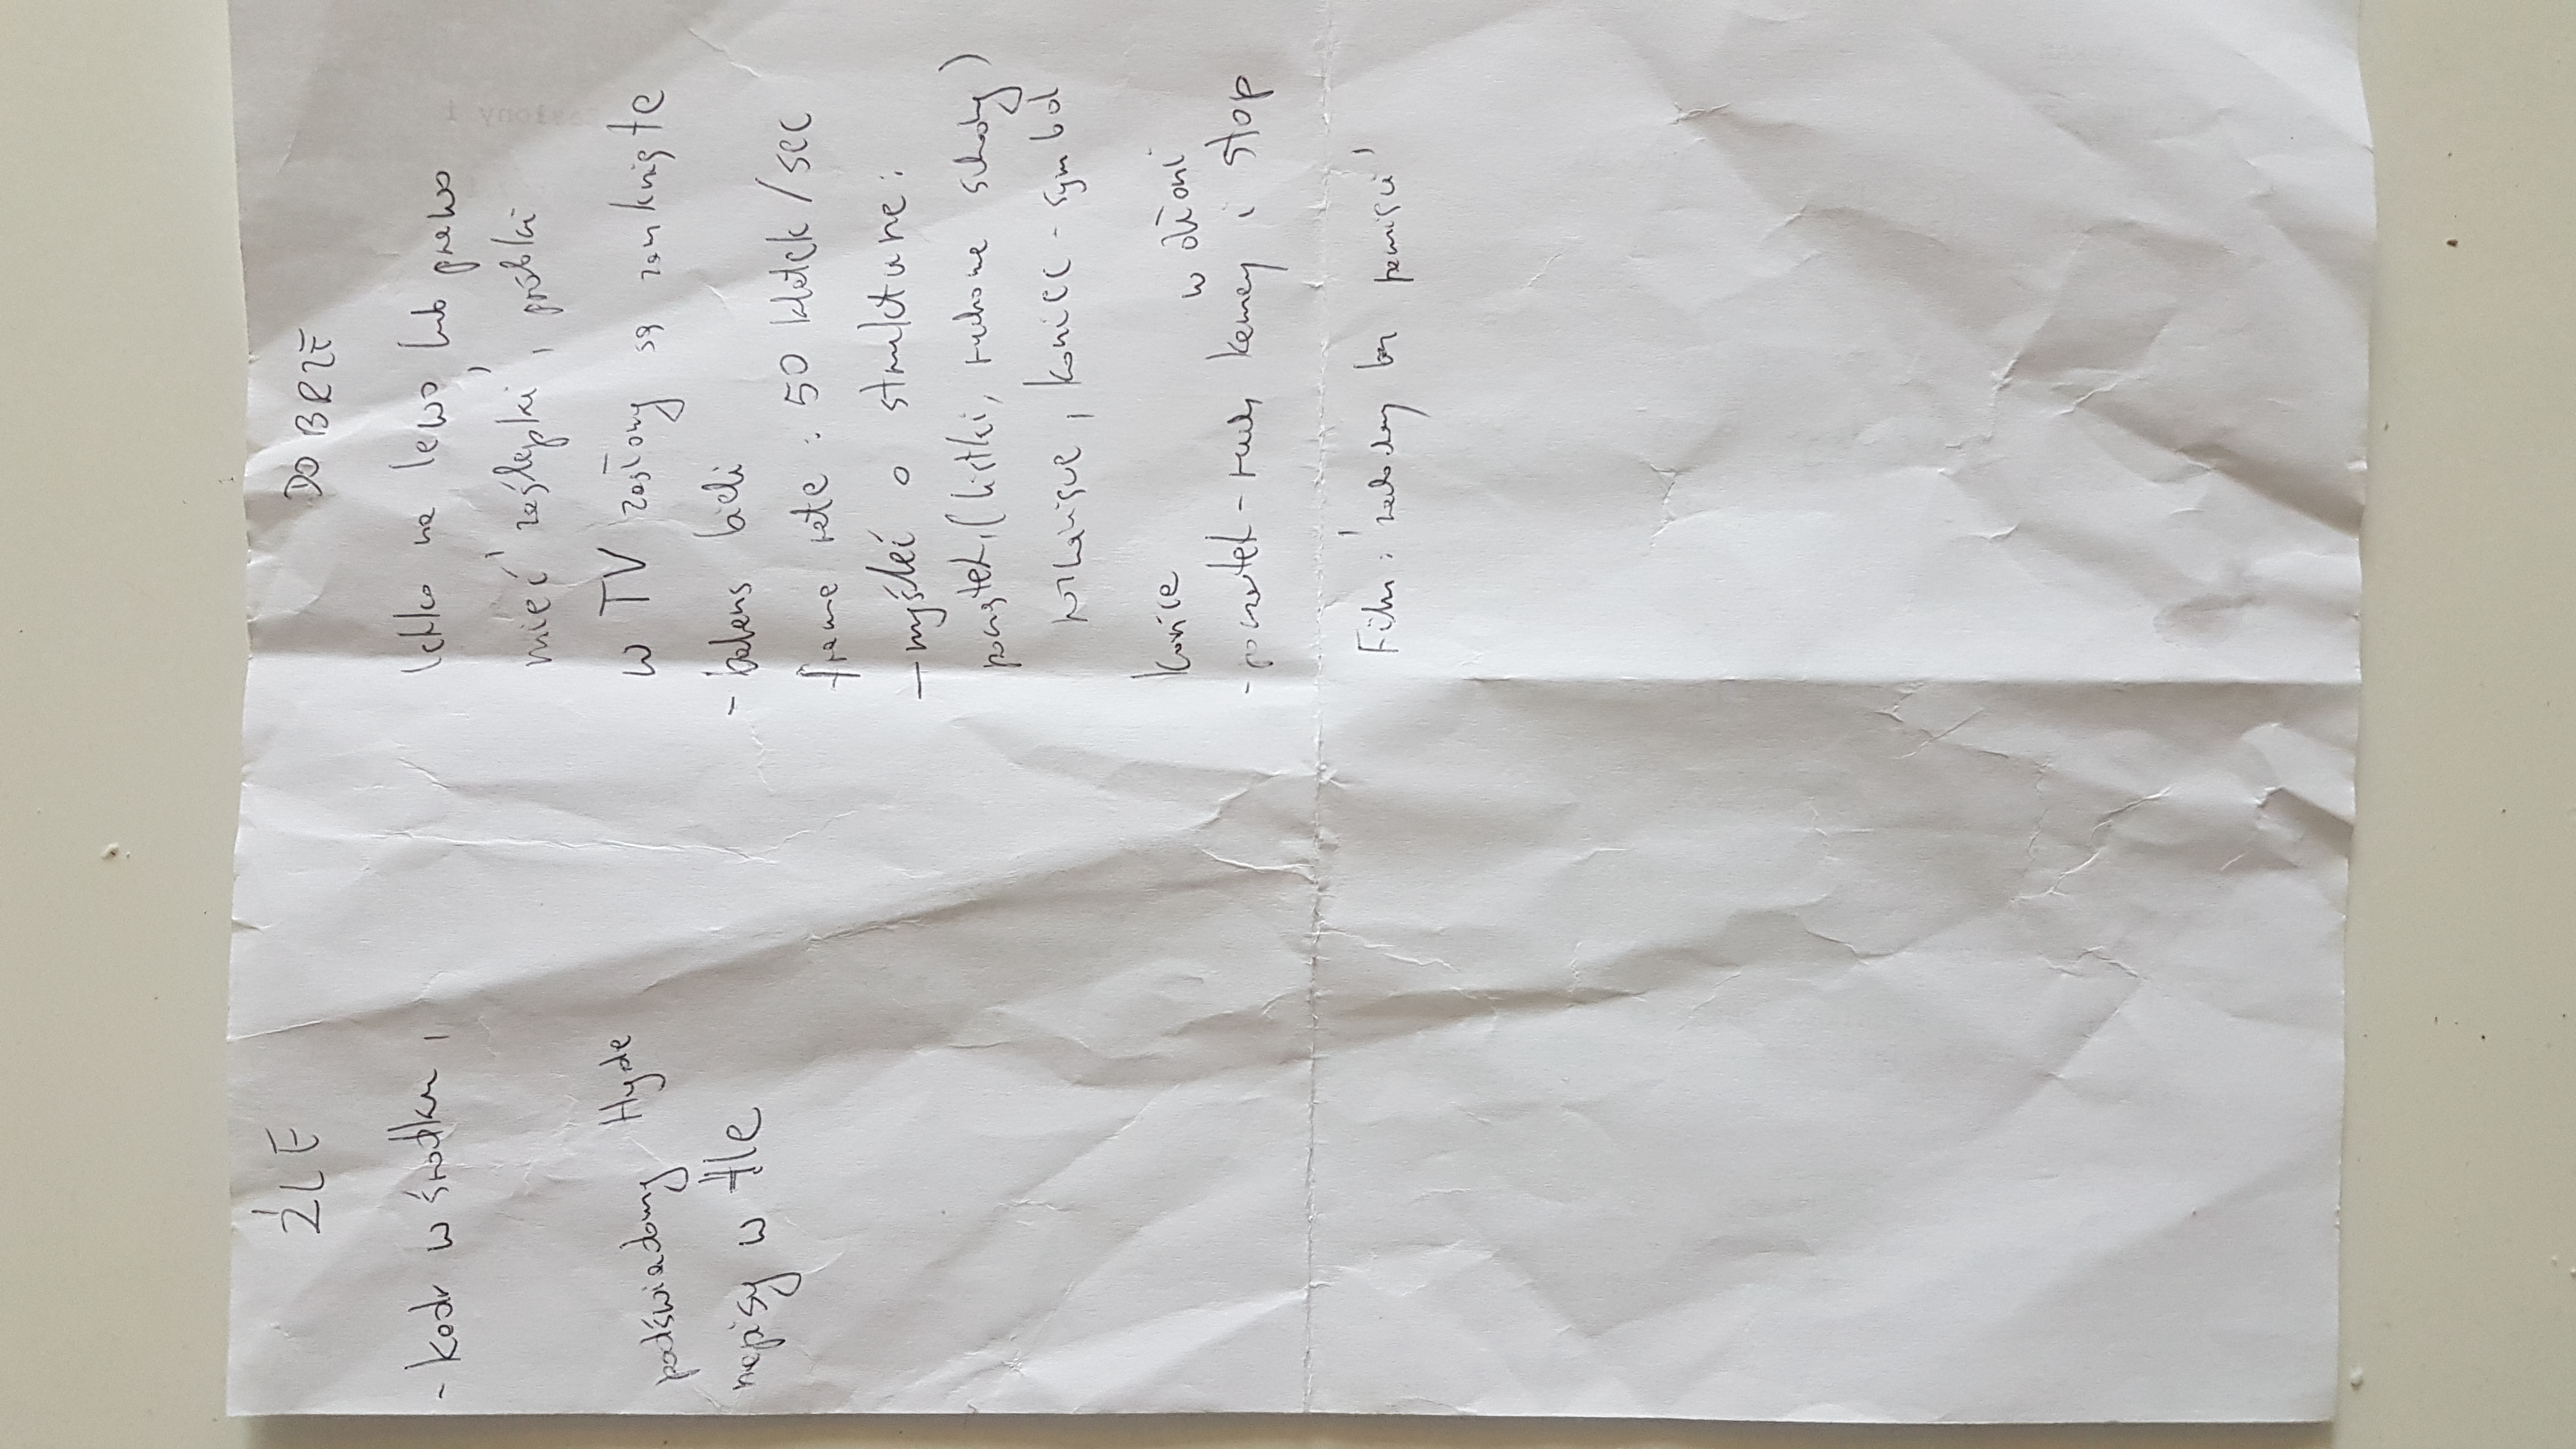 ŹLE
- kadr w środku,
podświadomy Hyde
napisy w tle
DOBRZE
lekko na lewo lub prawo
mieć 'zaślepki', próbki
w TV zasłony są zamknięte
- balans bieli
frame rate : 50 klatek/sec
- myśleć o strukturze:
początek, (listki, ruchome schody)
rozwinięcie, koniec - symbol
końce
w dłoni
- początek - ruch kamery i stop
Film: 'zakochany bez pamięci'